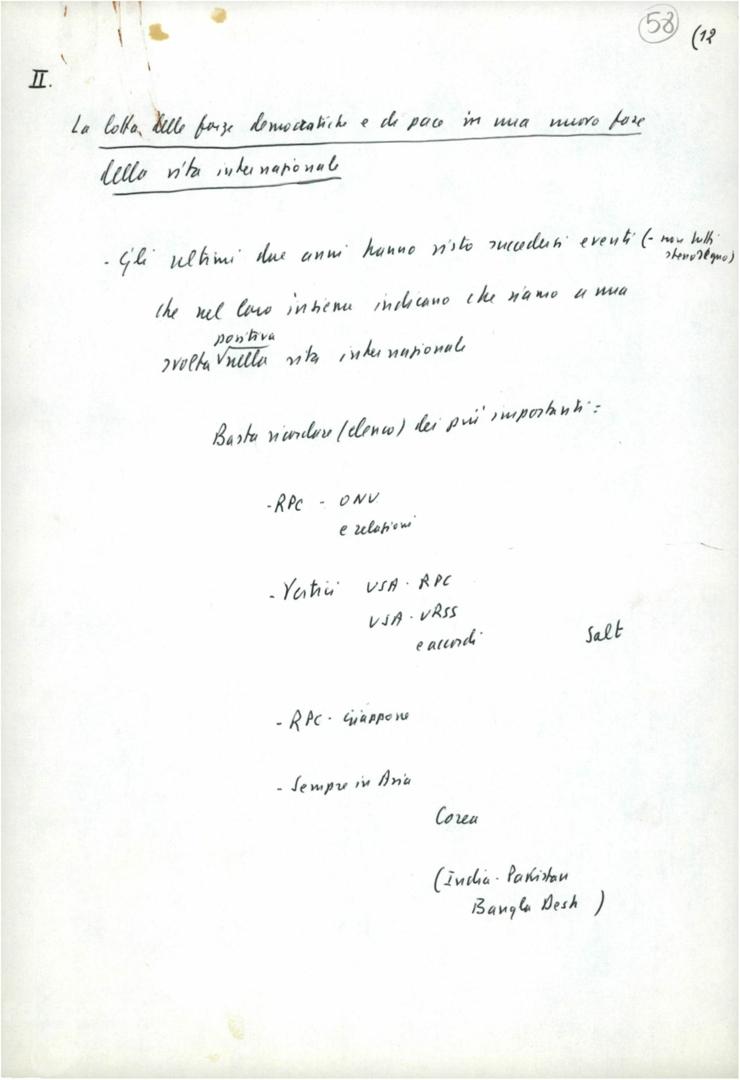 58
(12
II.
La lotta delle forze democratiche e di pace in una nuova fase
della vita internazionale
- Gli ultimi due anni hanno visto succedersi eventi (- non tutti
stesso segno)
che nel loro insieme indicano che siamo a una
positiva
svolta √ nella vita internazionale
Basta ricordare (elenco) dei più importanti:
- RPC - ONU
e relazioni
- Vertici USA - RPC
USA - URSS
e accordi Salt
- RPC - Giappone
- Sempre in Asia
Corea
(India - Pakistan
Bangla Desh )